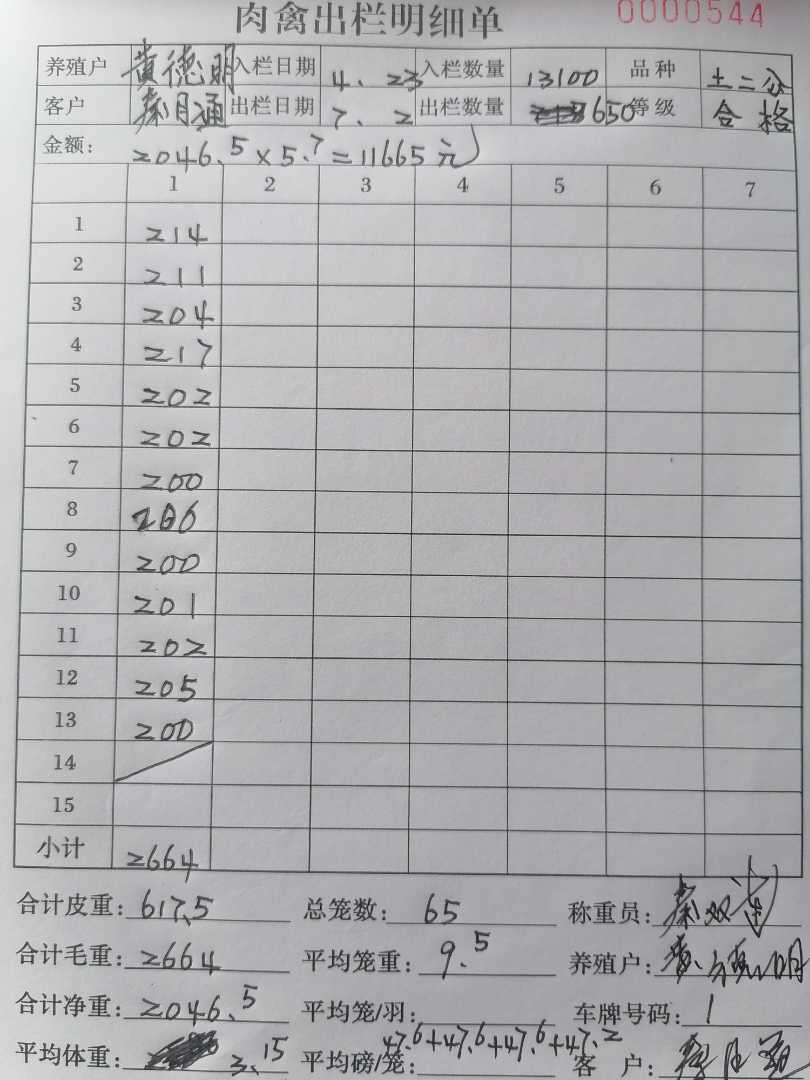 肉禽出栏明细单 0000544
养殖户 黄德明 入栏日期 4.23 入栏数量 13100 品种 土二公
客户 秦月通 出栏日期 7.2 出栏数量 650 等级 合格
金额: 2046.5×5.7=11665元
1 2 3 4 5 6 7
1 214
2 211
3 204
4 217
5 202
6 202
7 200
8 206
9 200
10 201
11 202
12 205
13 200
14
15
小计 2664
合计皮重: 617.5 总笼数: 65 称重员: 秦双
合计毛重: 2664 平均笼重: 9.5 养殖户: 黄德明
合计净重: 2046.5 平均笼/羽: 车牌号码: 1
平均体重: 3.15 平均磅/笼: 47.6+47.6+47.6+47.2 客户: